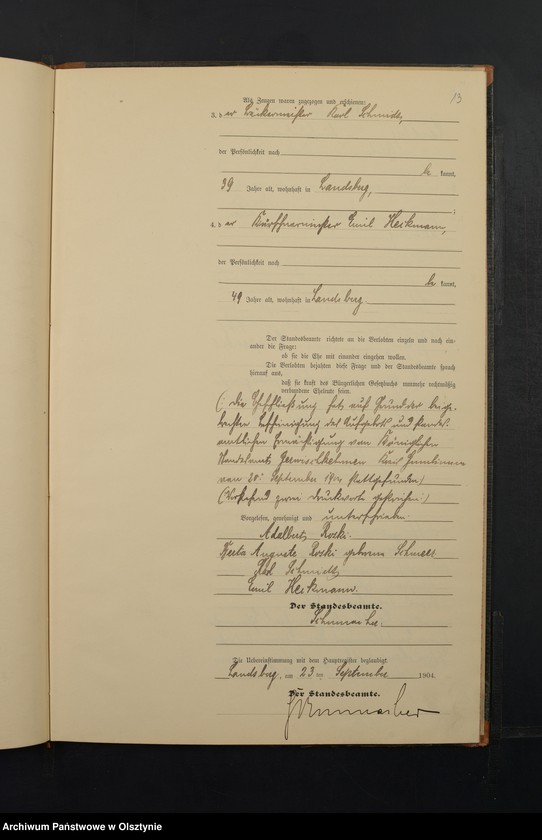 13
Als Zeugen waren zugezogen und erschienen:
3. der Bäckermeister Karl Schmidt,
der Persönlichkeit nach
be kannt,
39 Jahre alt, wohnhaft in Landsberg,
;
4. der Kürschnermeister Emil Heckmann,
der Persönlichkeit nach
be kannt,
49 Jahre alt, wohnhaft in Landsberg
Der Standesbeamte richtete an die Verlobten einzeln und nach ein-
ander die Frage:
ob sie die Ehe mit einander eingehen wollen.
Die Verlobten bejahten diese Frage und der Standesbeamte sprach
hierauf aus,
daß sie kraft des Bürgerlichen Gesetzbuchs nunmehr rechtmäßig
verbundene Eheleute seien.
(: Die Eheschließung hat auf Grund der beige-
brachten Bescheinigung des Aufgebots und standes-
amtlichen Ermächtigung vom Königlichen
Standesamts Kreis
vom September stattgefunden)
(Vorstehend zwei Druckworte gestrichen:)
Vorgelesen, genehmigt und unterschrieben.
Adalbert Roski.
Berta Auguste Roski geborene
Karl Schmidt
Emil Heckmann.
Der Standesbeamte.
Schumacher.
Die Uebereinstimmung mit dem Hauptregister beglaubigt
Landsberg, am 23 ten September 1904.
Der Standesbeamte.
Schumacher
Archiwum Państwowe w Olsztynie